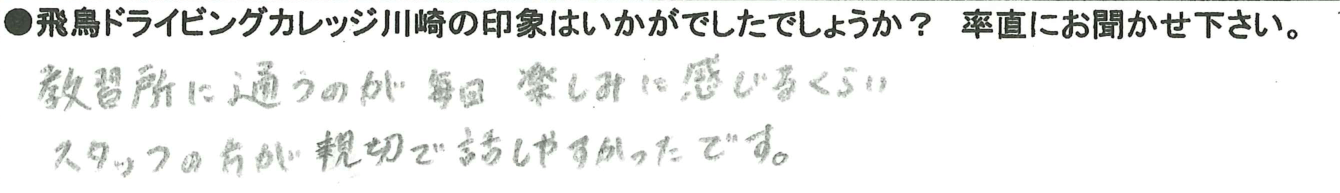 ●飛鳥ドライビングカレッジ川崎の印象はいかがでしたでしょうか？ 率直にお聞かせ下さい。
教習所に通うのが毎日楽しみに感じるくらい
スタッフの方が親切で話しやすかったです。